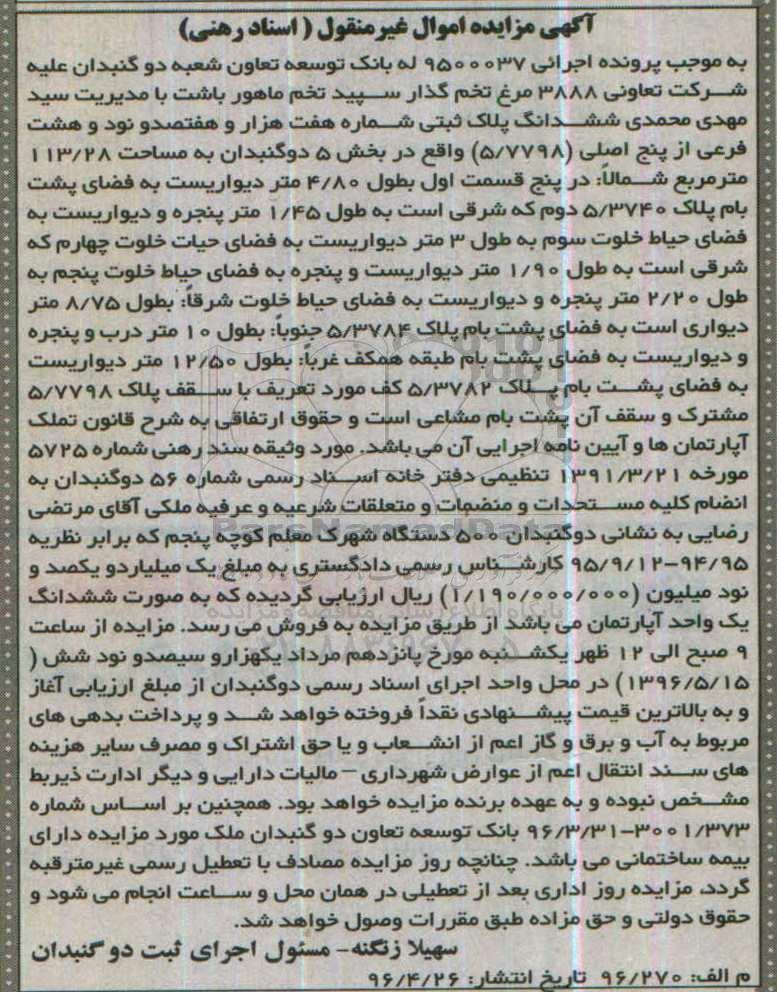 آگهی مزایده اموال غیرمنقول ( اسناد رهنی)
به موجب پرونده اجرائی ۹۵۰۰۰۳۷ له بانک توسعه تعاون شعبه دو گنبدان علیه
شرکت تعاونی ۳۸۸۸ مرغ تخم گذار سپید تخم ماهور باشت با مدیریت سید
مهدی محمدی ششدانگ پلاک ثبتی شماره هفت هزار و هفتصدو نود و هشت
فرعی از پنج اصلی (۵/۷۷۹۸) واقع در بخش ۵ دوگنبدان به مساحت ۱۱۳/۲۸
مترمربع شمالاً: در پنج قسمت اول بطول ۴/۸۰ متر دیواریست به فضای پشت
بام پلاک ۵/۳۷۴۰ دوم که شرقی است به طول ۱/۴۵ متر پنجره و دیواریست به
فضای حیاط خلوت سوم به طول ۳ متر دیواریست به فضای حیات خلوت چهارم که
شرقی است به طول ۱/۹۰ متر دیواریست و پنجره به فضای حیاط خلوت پنجم به
طول ۲/۲۰ متر پنجره و دیواریست به فضای حیاط خلوت شرقاً: بطول ۸/۷۵ متر
دیواری است به فضای پشت بام پلاک ۵/۳۷۸۴ جنوباً: بطول ۱۰ متر درب و پنجره
و دیواریست به فضای پشت بام طبقه همکف غرباً: بطول ۱۲/۵۰ متر دیواریست
به فضای پشت بام پلاک ۵/۳۷۸۲ کف مورد تعریف با سقف پلاک ۵/۷۷۹۸
مشترک و سقف آن پشت بام مشاعی است و حقوق ارتفاقی به شرح قانون تملک
آپارتمان ها و آیین نامه اجرایی آن می باشد. مورد وثیقه سند رهنی شماره ۵۷۲۵
مورخه ۱۳۹۱/۳/۲۱ تنظیمی دفتر خانه اسناد رسمی شماره ۵۶ دوگنبدان به
انضام کلیه مستحدات و منضمات و متعلقات شرعیه و عرفیه ملکی آقای مرتضی
رضایی به نشانی دوگنبدان ۵۰۰ دستگاه شهرک معلم کوچه پنجم که برابر نظریه
۹۴/۹۵-۹۵/۹/۱۲ کارشناس رسمی دادگستری به مبلغ یک میلیاردو یکصد و
نود میلیون (۱/۱۹۰/۰۰۰/۰۰۰) ریال ارزیابی گردیده که به صورت ششدانگ
یک واحد آپارتمان می باشد از طریق مزایده به فروش می رسد. مزایده از ساعت
۹ صبح الی ۱۲ ظهر یکشنبه مورخ پانزدهم مرداد یکهزارو سیصدو نود شش (
۱۳۹۶/۵/۱۵) در محل واحد اجرای اسناد رسمی دوگنبدان از مبلغ ارزیابی آغاز
و به بالاترین قیمت پیشنهادی نقداً فروخته خواهد شد و پرداخت بدهی های
مربوط به آب و برق و گاز اعم از انشعاب و یا حق اشتراک و مصرف سایر هزینه
های سند انتقال اعم از عوارض شهرداری – مالیات دارایی و دیگر ادارت ذیربط
مشخص نبوده و به عهده برنده مزایده خواهد بود. همچنین بر اساس شماره
۳۰۰۱/۳۷۳-۹۶/۳/۳۱ بانک توسعه تعاون دو گنبدان ملک مورد مزایده دارای
بیمه ساختمانی می باشد. چنانچه روز مزایده مصادف با تعطیل رسمی غیرمترقبه
گردد، مزایده روز اداری بعد از تعطیلی در همان محل و ساعت انجام می شود و
حقوق دولتی و حق مزاده طبق مقررات وصول خواهد شد.
سهیلا زنگنه- مسئول اجرای ثبت دو گنبدان
م الف: ۹۶/۲۷۰ تاریخ انتشار: ۹۶/۴/۲۶
ParsNamadData